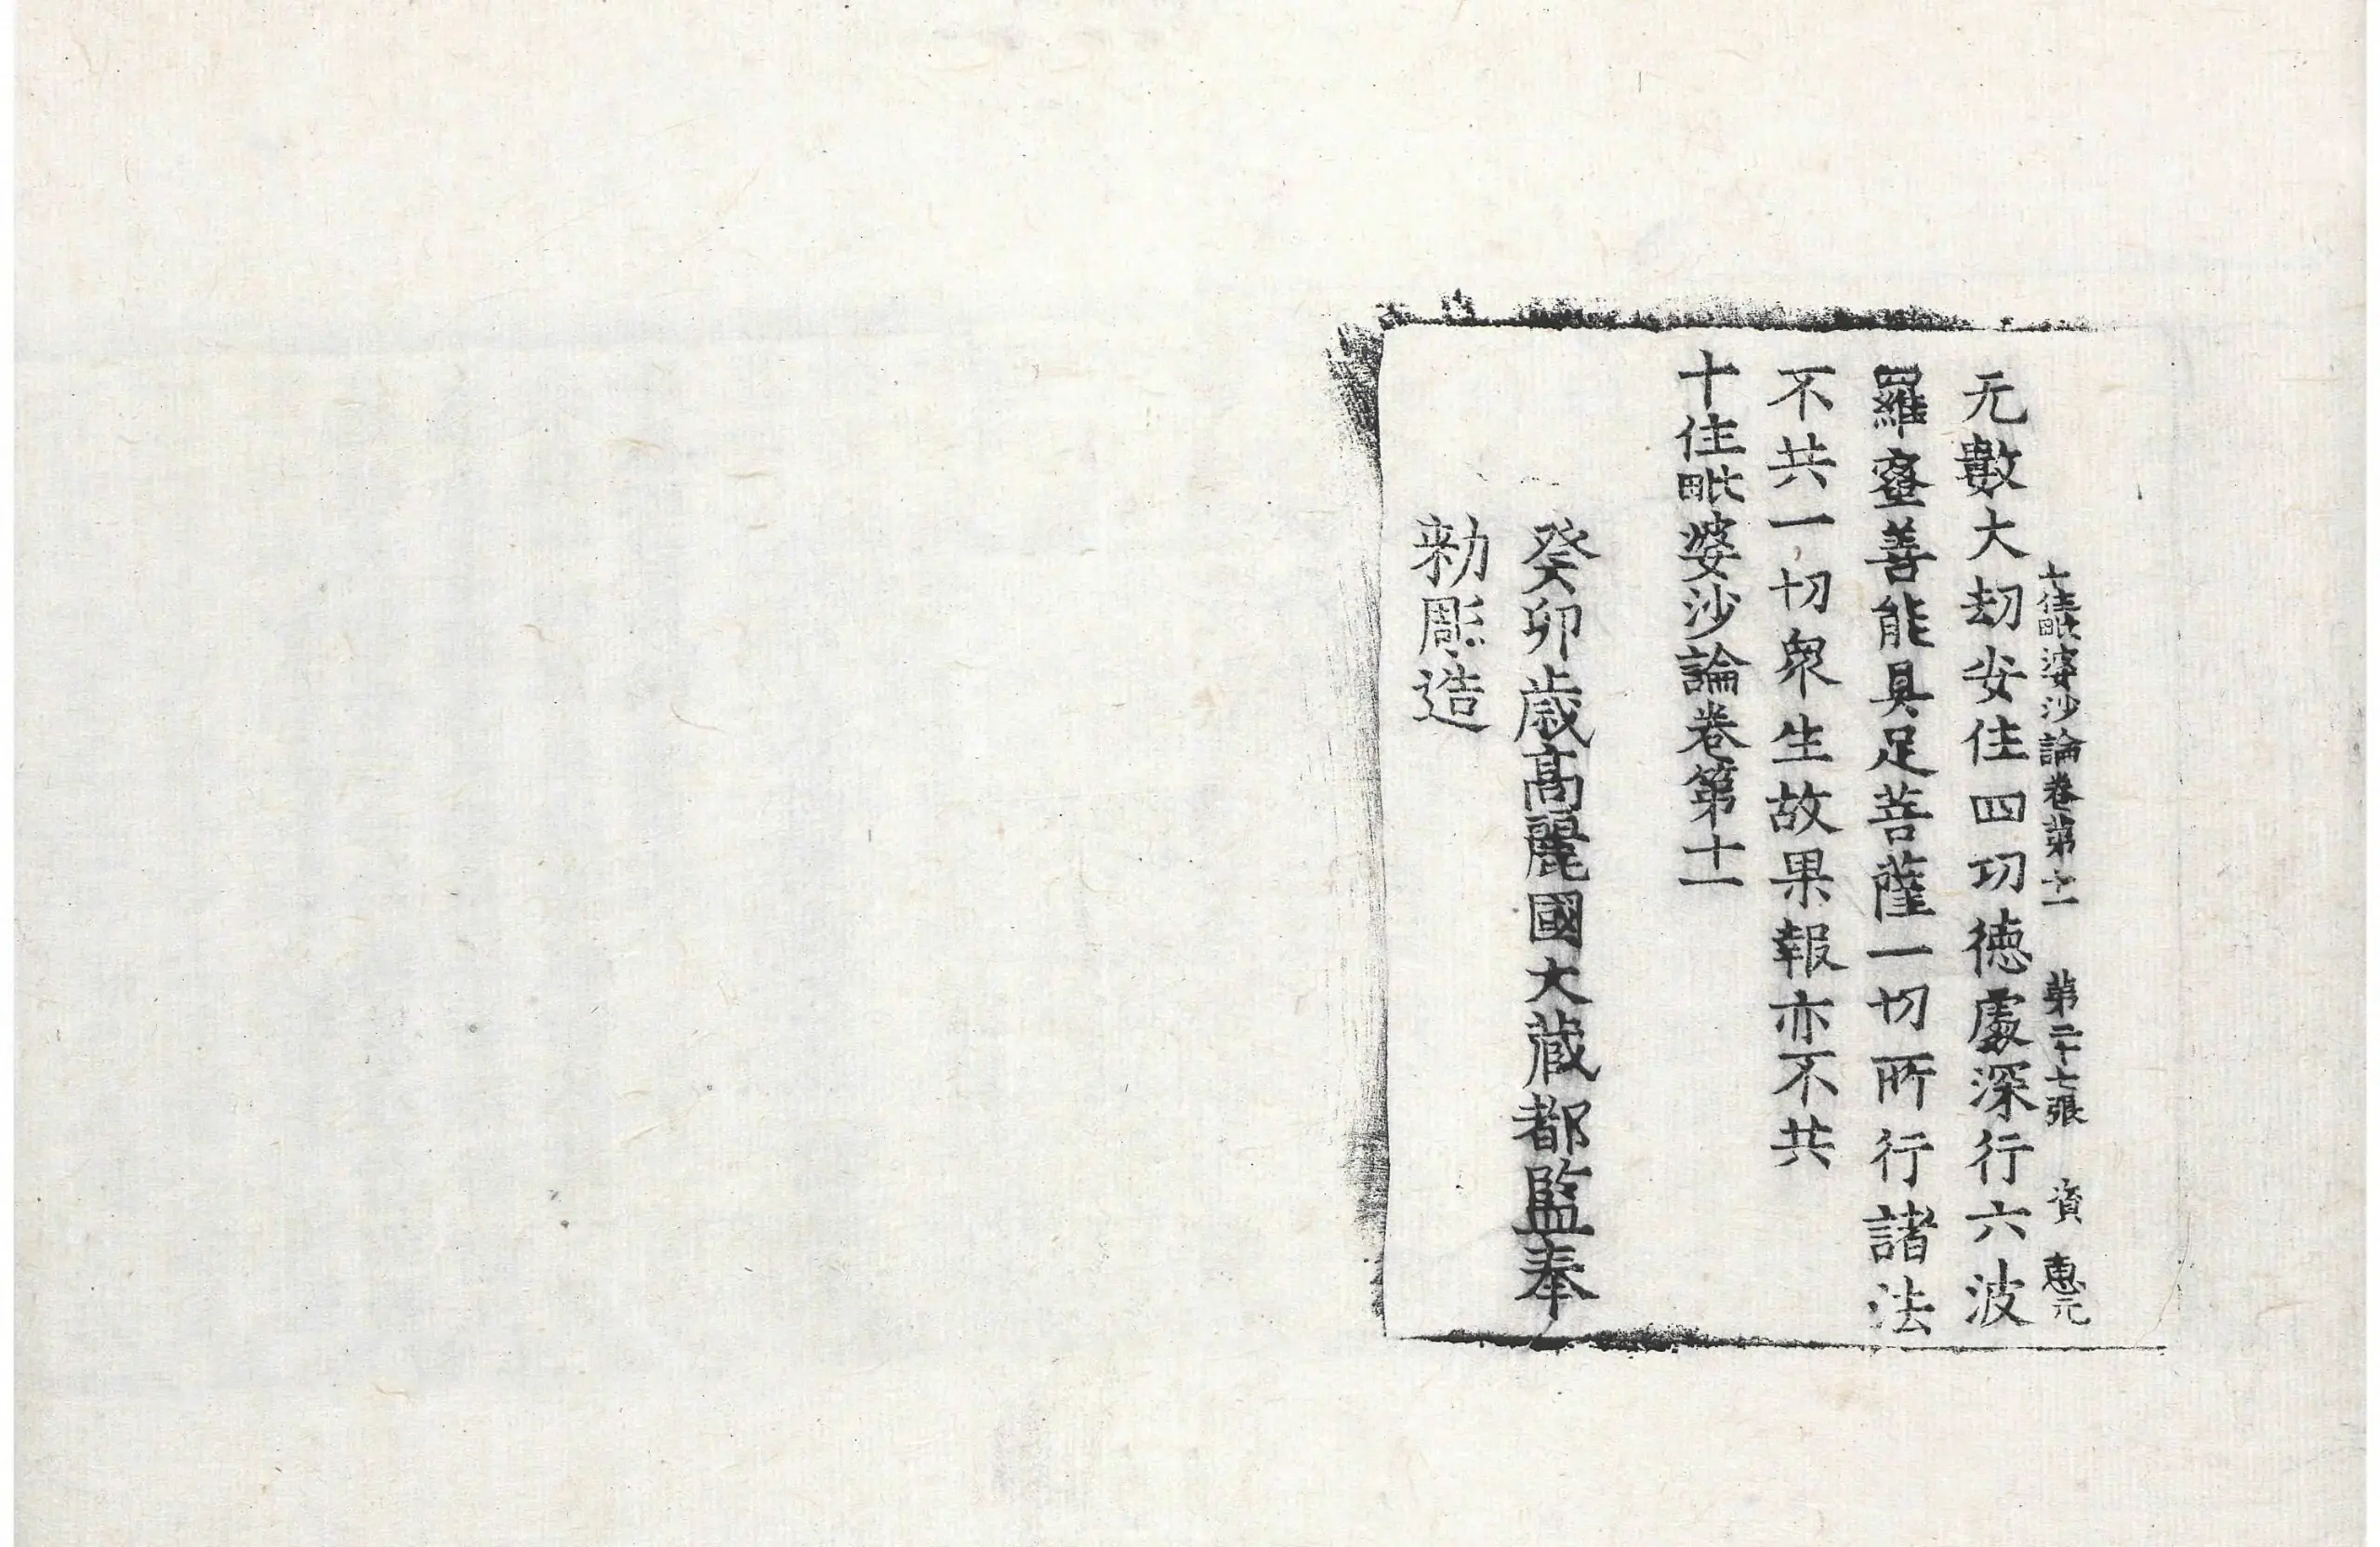 十住毗婆沙論卷第十一 第二十七張 資 惠元
无數大劫安住四功德處深行六波
羅蜜善能具足菩薩一切所行諸法
不共一切衆生故果報亦不共
十住毗婆沙論卷第十一
癸卯歲高麗國大藏都監奉
勑彫造